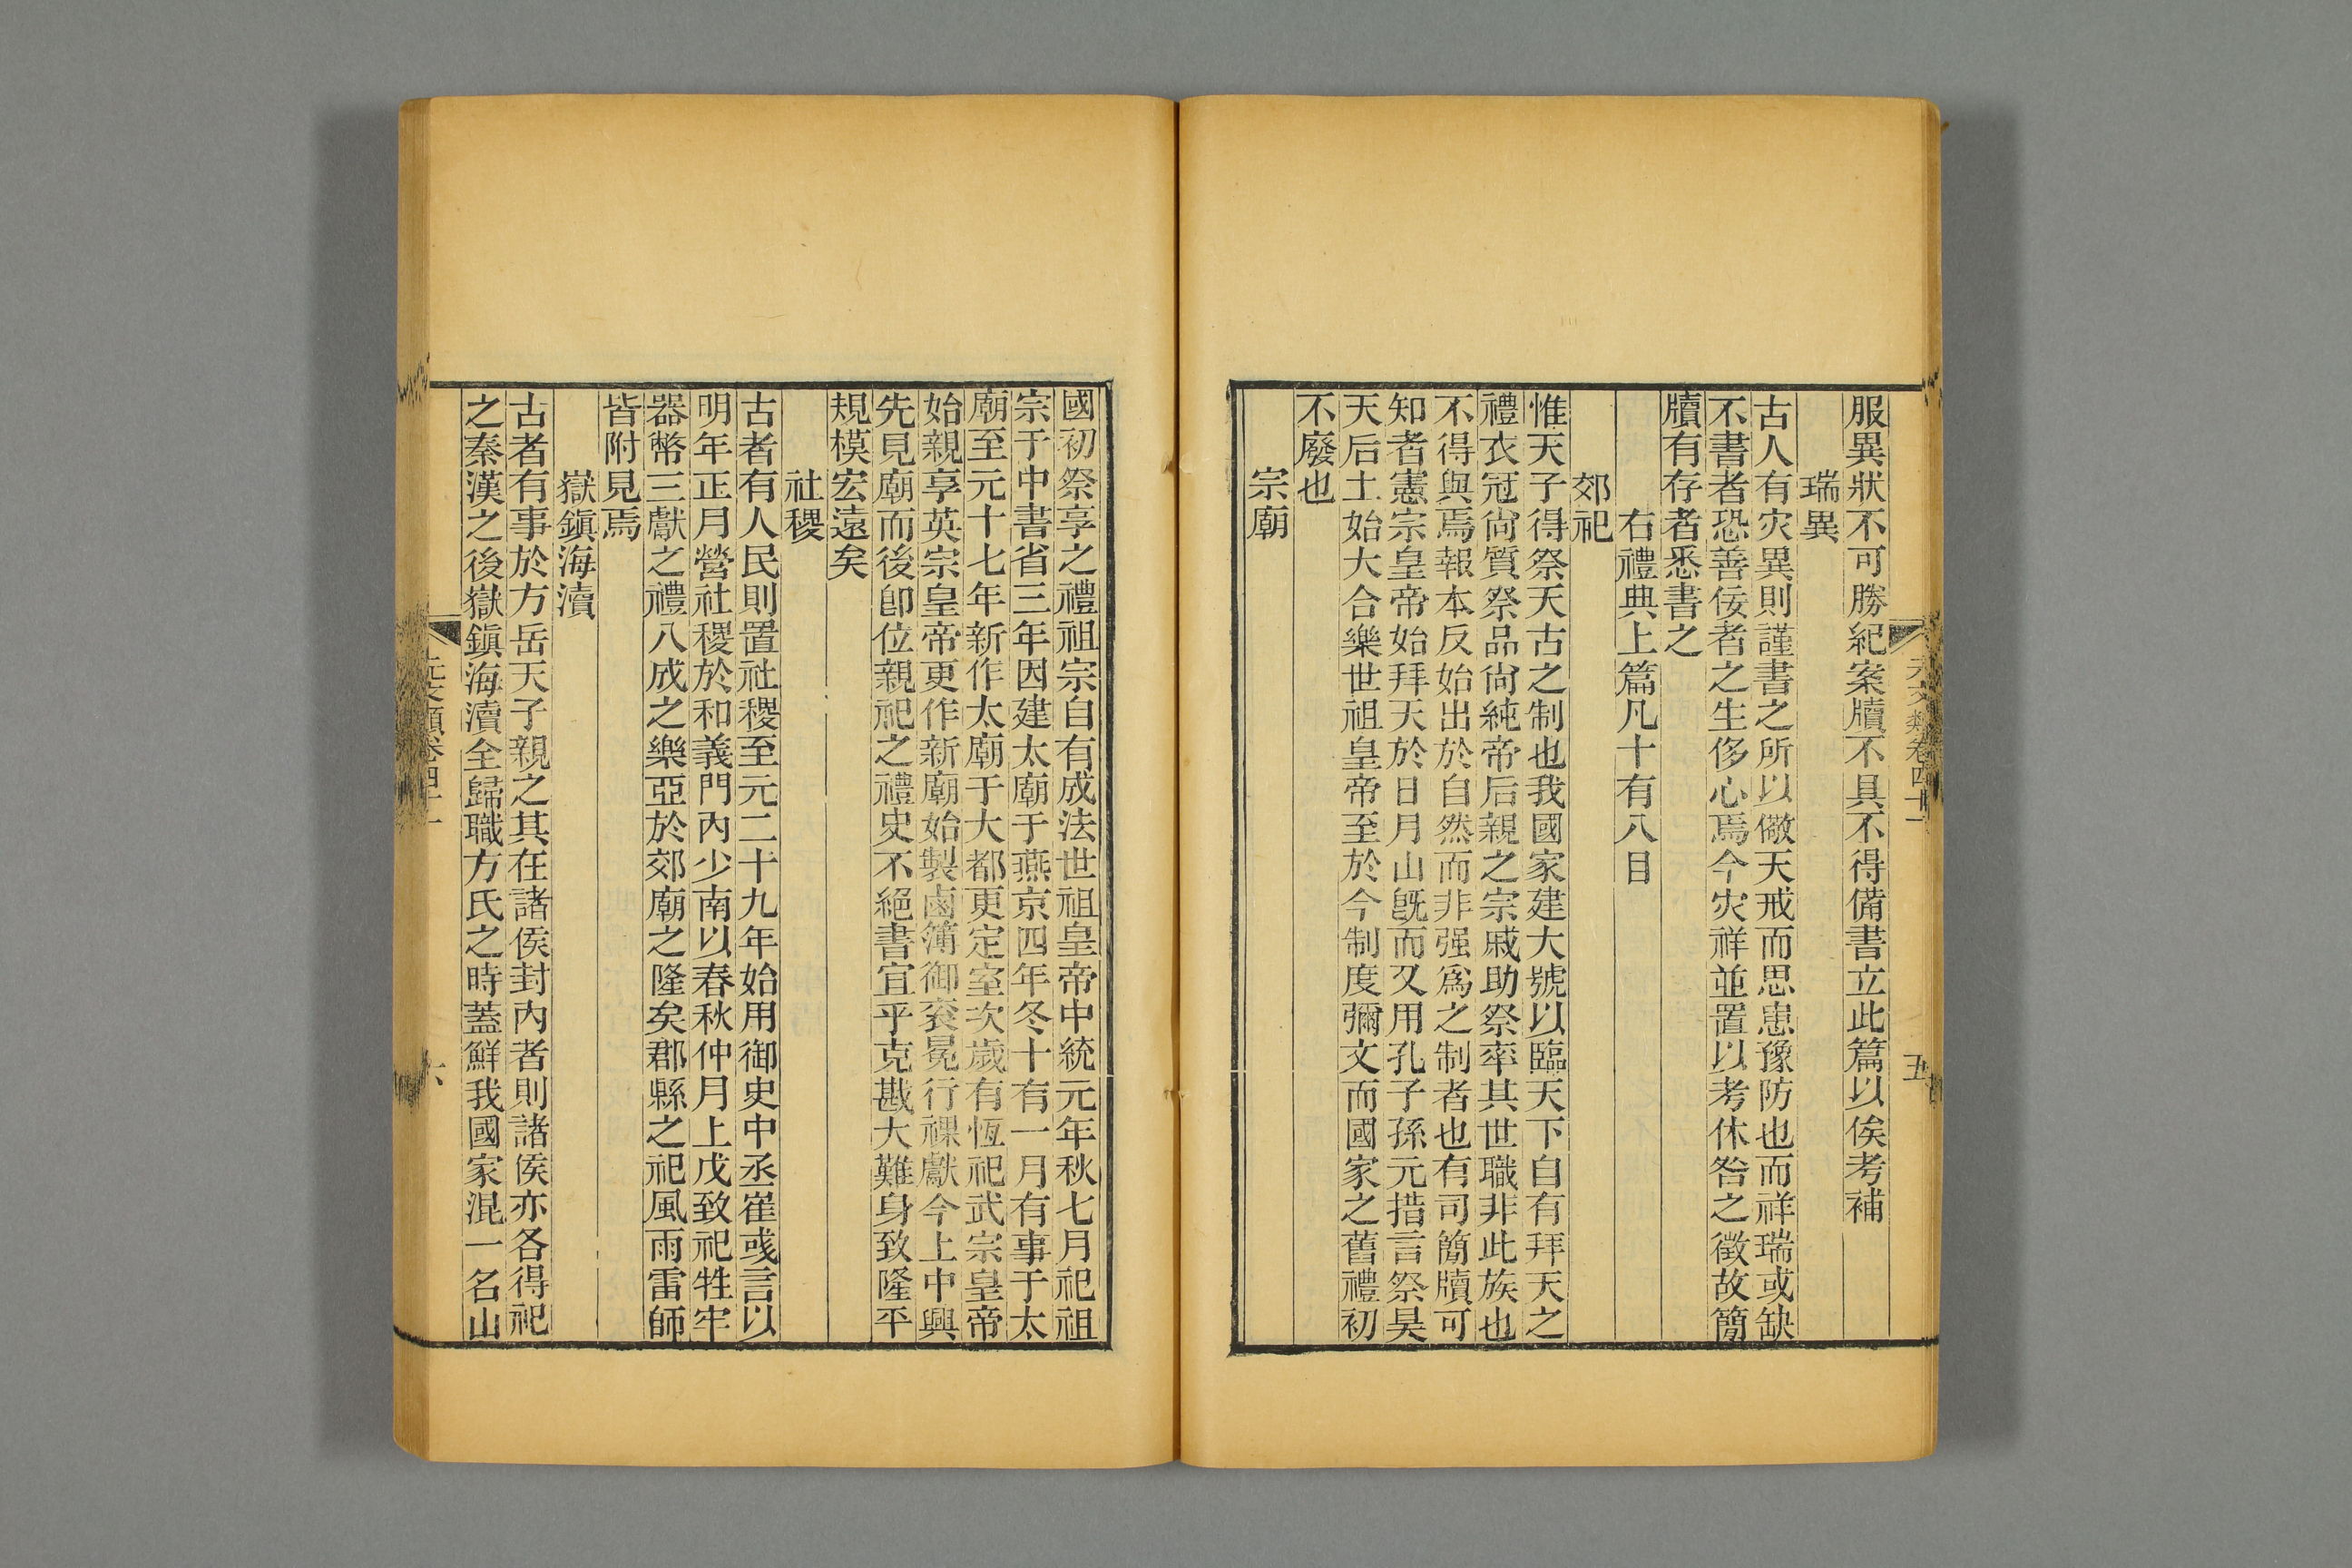 元文類卷四十一
五
服異狀不可勝紀案牘不具不得備書立此篇以俟考補
瑞異
古人有灾異則謹書之所以儆天戒而思患豫防也而祥瑞或缺
不書者恐善佞者之生侈心焉今灾祥並置以考休咎之徵故簡
牘有存者悉書之
右禮典上篇凡十有八目
郊祀
惟天子得祭天古之制也我國家建大號以臨天下自有拜天之
禮衣冠尙質祭品尙純帝后親之宗戚助祭率其世職非此族也
不得與焉報本反始出於自然而非强爲之制者也有司簡牘可
知者憲宗皇帝始拜天於日月山旣而又用孔子孫元措言祭昊
天后土始大合樂世祖皇帝至於今制度彌文而國家之舊禮初
不廢也
宗廟
國初祭享之禮祖宗自有成法世祖皇帝中統元年秋七月祀祖
宗于中書省三年因建太廟于燕京四年冬十有一月有事于太
廟至元十七年新作太廟于大都更定室次歲有恆祀武宗皇帝
始親享英宗皇帝更作新廟始製鹵簿御袞冕行祼獻今上中興
先見廟而後卽位親祀之禮史不絕書宜乎克戡大難身致隆平
規模宏遠矣
社稷
古者有人民則置社稷至元二十九年始用御史中丞崔彧言以
明年正月營社稷於和義門內少南以春秋仲月上戊致祀牲牢
器幣三獻之禮八成之樂亞於郊廟之隆矣郡縣之祀風雨雷師
皆附見焉
嶽鎭海瀆
古者有事於方岳天子親之其在諸侯封內者則諸侯亦各得祀
之秦漢之後嶽鎭海瀆全歸職方氏之時蓋鮮我國家混一名山
元文類卷四十一
六